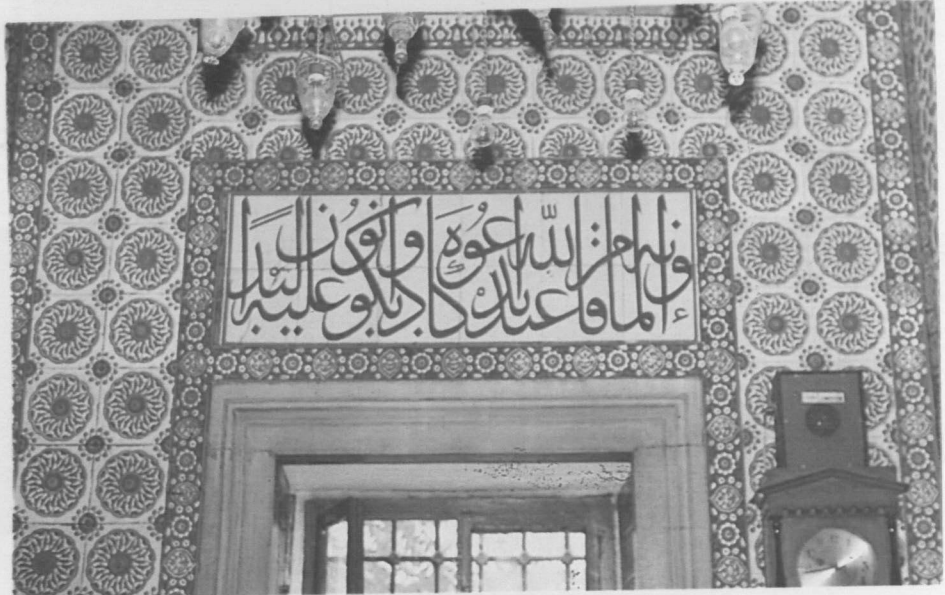 وأنه لما قام عبد الله يدعوه كادوا يكونون عليه لبدا